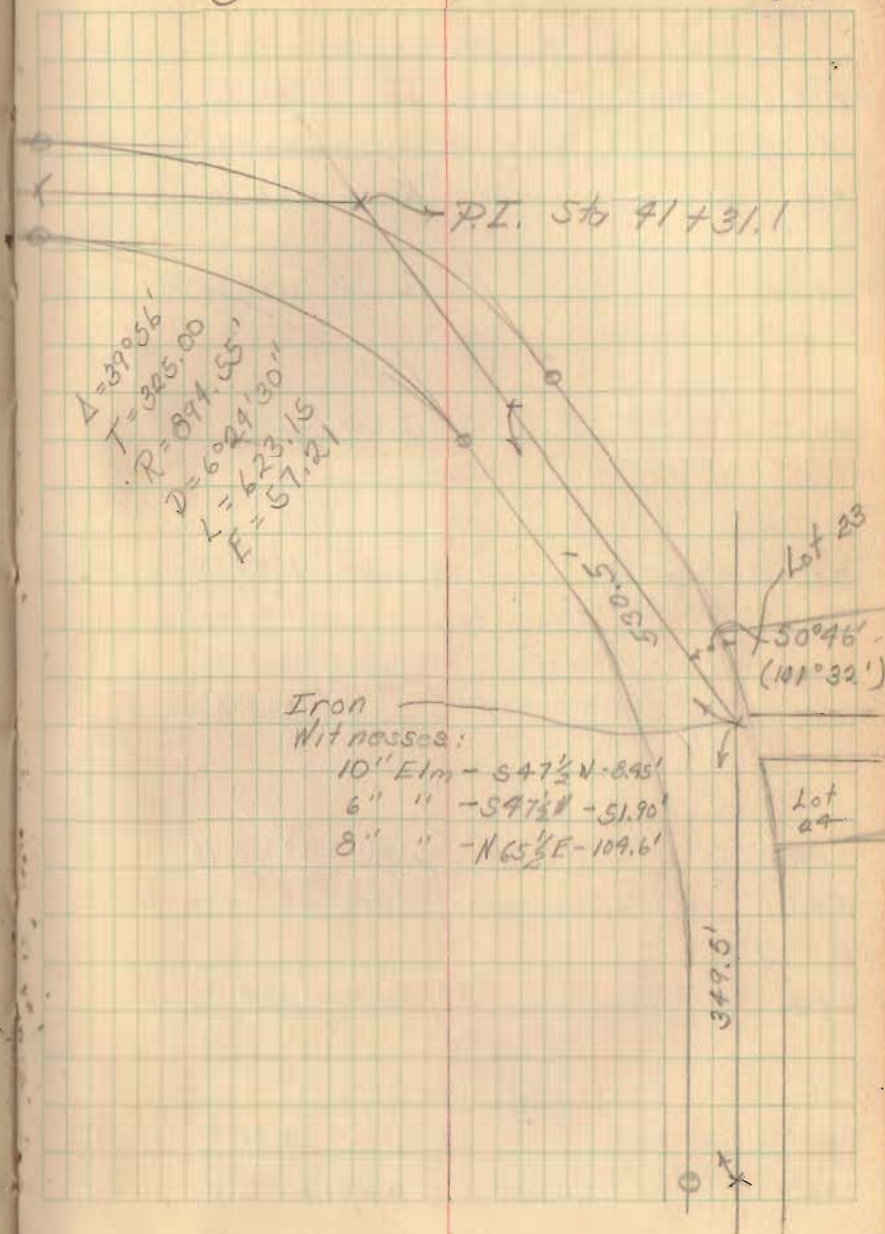 P.I. Sta 41+31.1
Δ=39°56'
T=325.00
R=894.55'
D=6°24'30"
L=623.15
E=57.21
530.5'
Lot 23
50°46'
(101°32')
Iron
Witnesses:
10" Elm - S47½W - 8.95'
6" " - S47½W - 51.90'
8" " - N65½E - 104.6'
Lot
24
349.5'